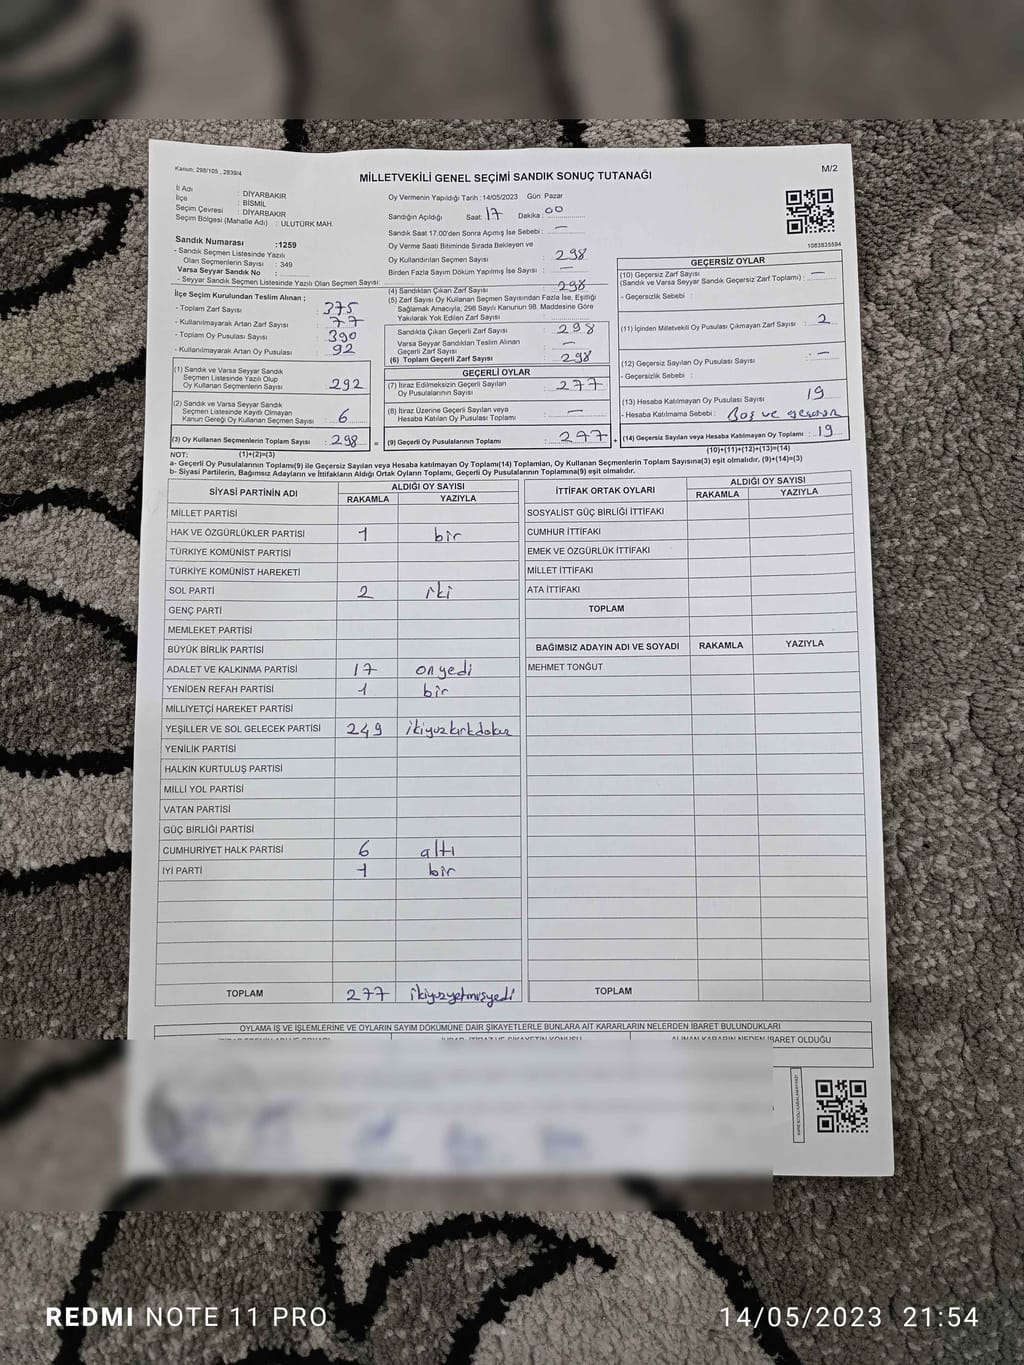 Kanun: 298/105 , 2839/4
MİLLETVEKİLİ GENEL SEÇİMİ SANDIK SONUÇ TUTANAĞI
M/2
İl Adı : DİYARBAKIR
İlçe : BİSMİL
Seçim Çevresi : DİYARBAKIR
Seçim Bölgesi (Mahalle Adı) : ULUTÜRK MAH.
Sandık Numarası :1259
- Sandık Seçmen Listesinde Yazılı
Olan Seçmenlerin Sayısı : 349
Varsa Seyyar Sandık No :
- Seyyar Sandık Seçmen Listesinde Yazılı Olan Seçmen Sayısı:
Oy Vermenin Yapıldığı Tarih : 14/05/2023 Gün: Pazar
Sandığın Açıldığı Saat: 17 Dakika : 00
Sandık Saat 17.00'den Sonra Açılmış İse Sebebi : —
Oy Verme Saati Bitiminde Sırada Bekleyen ve
Oy Kullandırılan Seçmen Sayısı : 298
Birden Fazla Sayım Döküm Yapılmış İse Sayısı : —
1083835594
İlçe Seçim Kurulundan Teslim Alınan ;
- Toplam Zarf Sayısı : 375
- Kullanılmayarak Artan Zarf Sayısı : 77
- Toplam Oy Pusulası Sayısı : 390
- Kullanılmayarak Artan Oy Pusulası : 92
(1) Sandık ve Varsa Seyyar Sandık
Seçmen Listesinde Yazılı Olup
Oy Kullanan Seçmenlerin Sayısı : 292
(2) Sandık ve Varsa Seyyar Sandık
Seçmen Listesinde Kayıtlı Olmayan
Kanun Gereği Oy Kullanan Seçmen Sayısı : 6
(3) Oy Kullanan Seçmenlerin Toplam Sayısı : 298 =
(4) Sandıktan Çıkan Zarf Sayısı : 298
(5) Zarf Sayısı Oy Kullanan Seçmen Sayısından Fazla İse, Eşitliği
Sağlamak Amacıyla, 298 Sayılı Kanunun 98. Maddesine Göre
Yakılarak Yok Edilen Zarf Sayısı :
Sandıkta Çıkan Geçerli Zarf Sayısı : 298
Varsa Seyyar Sandıktan Teslim Alınan
Geçerli Zarf Sayısı : —
(6) Toplam Geçerli Zarf Sayısı : 298
GEÇERLİ OYLAR
(7) İtiraz Edilmeksizin Geçerli Sayılan
Oy Pusulasının Sayısı : 277
(8) İtiraz Üzerine Geçerli Sayılan veya
Hesaba Katılan Oy Pusulası Toplamı : —
(9) Geçerli Oy Pusulalarının Toplamı : 277 +
GEÇERSİZ OYLAR
(10) Geçersiz Zarf Sayısı
(Sandık ve Varsa Seyyar Sandık Geçersiz Zarf Toplamı) : —
- Geçersizlik Sebebi :
(11) İçinden Milletvekili Oy Pusulası Çıkmayan Zarf Sayısı : 2
(12) Geçersiz Sayılan Oy Pusulası Sayısı : —
- Geçersizlik Sebebi :
(13) Hesaba Katılmayan Oy Pusulası Sayısı : 19
- Hesaba Katılmama Sebebi : Boş ve
(14) Geçersiz Sayılan veya Hesaba Katılmayan Oy Toplamı : 19
NOT: (1)+(2)=(3)
(10)+(11)+(12)+(13)=(14)
a- Geçerli Oy Pusulalarının Toplamı(9) ile Geçersiz Sayılan veya Hesaba katılmayan Oy Toplamı(14) Toplamları, Oy Kullanan Seçmenlerin Toplam Sayısına(3) eşit olmalıdır. (9)+(14)=(3)
b- Siyasi Partilerin, Bağımsız Adayların ve İttifakların Aldığı Ortak Oyların Toplamı, Geçerli Oy Pusulalarının Toplamına(9) eşit olmalıdır.
SİYASİ PARTİNİN ADI ALDIĞI OY SAYISI
RAKAMLA YAZIYLA
MİLLET PARTİSİ
HAK VE ÖZGÜRLÜKLER PARTİSİ 1 bir
TÜRKİYE KOMÜNİST PARTİSİ
TÜRKİYE KOMÜNİST HAREKETİ
SOL PARTİ 2 iki
GENÇ PARTİ
MEMLEKET PARTİSİ
BÜYÜK BİRLİK PARTİSİ
ADALET VE KALKINMA PARTİSİ 17 onyedi
YENİDEN REFAH PARTİSİ 1 bir
MİLLİYETÇİ HAREKET PARTİSİ
YEŞİLLER VE SOL GELECEK PARTİSİ 249 ikiyuzkırkdokuz
YENİLİK PARTİSİ
HALKIN KURTULUŞ PARTİSİ
MİLLİ YOL PARTİSİ
VATAN PARTİSİ
GÜÇ BİRLİĞİ PARTİSİ
CUMHURİYET HALK PARTİSİ 6 altı
İYİ PARTİ 1 bir
TOPLAM 277 ikiyuzyetmişyedi
İTTİFAK ORTAK OYLARI ALDIĞI OY SAYISI
RAKAMLA YAZIYLA
SOSYALİST GÜÇ BİRLİĞİ İTTİFAKI
CUMHUR İTTİFAKI
EMEK VE ÖZGÜRLÜK İTTİFAKI
MİLLET İTTİFAKI
ATA İTTİFAKI
TOPLAM
BAĞIMSIZ ADAYIN ADI VE SOYADI RAKAMLA YAZIYLA
MEHMET TONĞUT
TOPLAM
OYLAMA İŞ VE İŞLEMLERİNE VE OYLARIN SAYIM DÖKÜMÜNE DAİR ŞİKAYETLERLE BUNLARA AİT KARARLARIN NELERDEN İBARET BULUNDUKLARI
ALINAN KARARIN NEDEN İBARET OLDUĞU
REDMI NOTE 11 PRO
14/05/2023 21:54